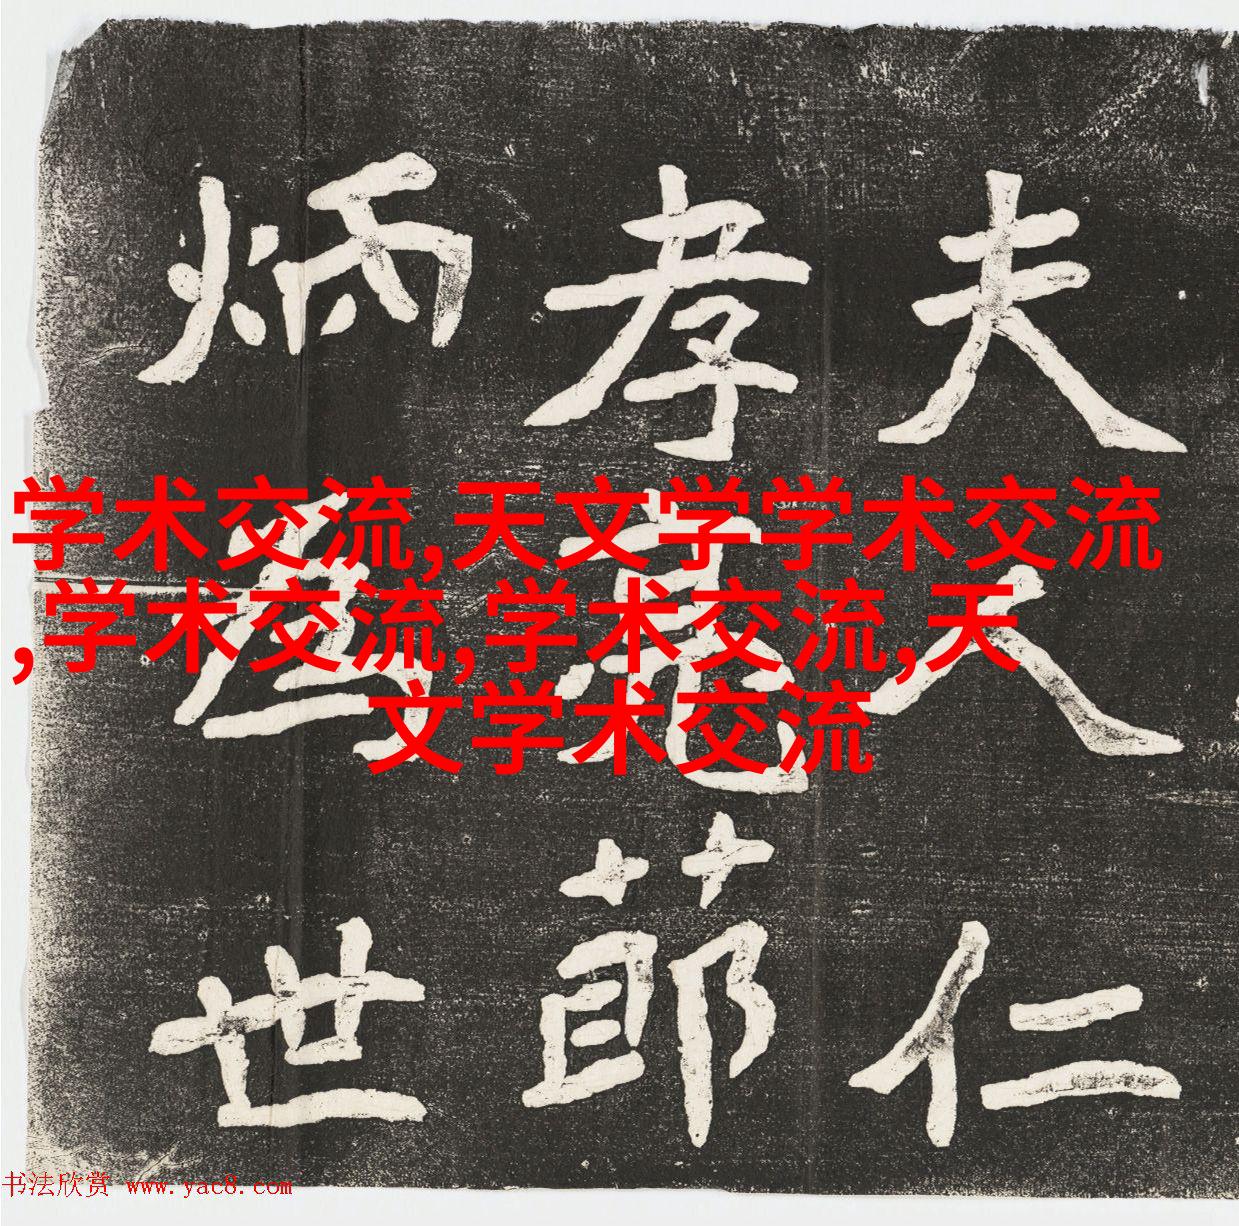 夫人仁
孝莭
炳世
学术交流,天文学学术交流
,学术交流,学术交流,天
文学术交流
书法欣赏 www.yac8.com